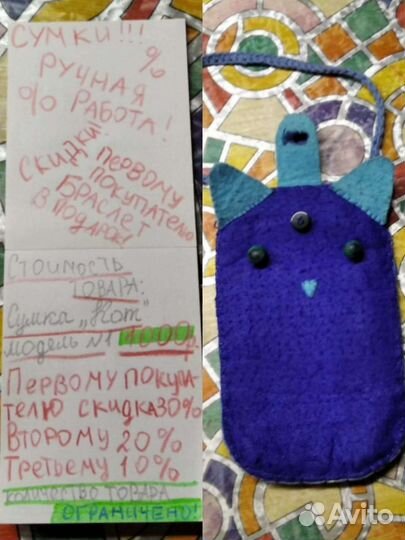 СУМКИ!!!
%
РУЧНАЯ
% РАБОТА!
СКИДКИ!
ПЕРВОМУ
ПОКУПАТЕЛЮ
БРАСЛЕТ
В ПОДАРОК!
СТОИМОСТЬ
ТОВАРА:
Сумка „Кот"
модель №1 1000р.
ПЕРВОМУ ПОКУПА-
ТЕЛЮ СКИДКА 30%
ВТОРОМУ 20%
ТРЕТЬЕМУ 10%
КОЛИЧЕСТВО ТОВАРА
ОГРАНИЧЕНО!
Avito